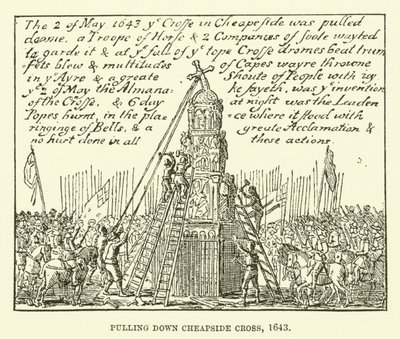 The 2 of May. 1643 yᵉ Crosse in Cheapeside was pulled
downe, a Troope of Horse & 2 Companyes of foote wayted
to garde it & at yᵉ fall of yᵉ tope Crosse dromes beat trum
pets blew & multitudes of Capes wayre throwne
in yᵉ Ayre & a greate Shoute of People with ioy
yᵉ 2 of May the Almana- ke sayeth, was yᵉ invention
of the Crosse, & 6 day at night was the Leaden
Popes burnt, in the pla- ce where it stood with
ringinge of Bells, & a greate Acclamation &
no hurt done in all these actions.
PULLING DOWN CHEAPSIDE CROSS, 1643.